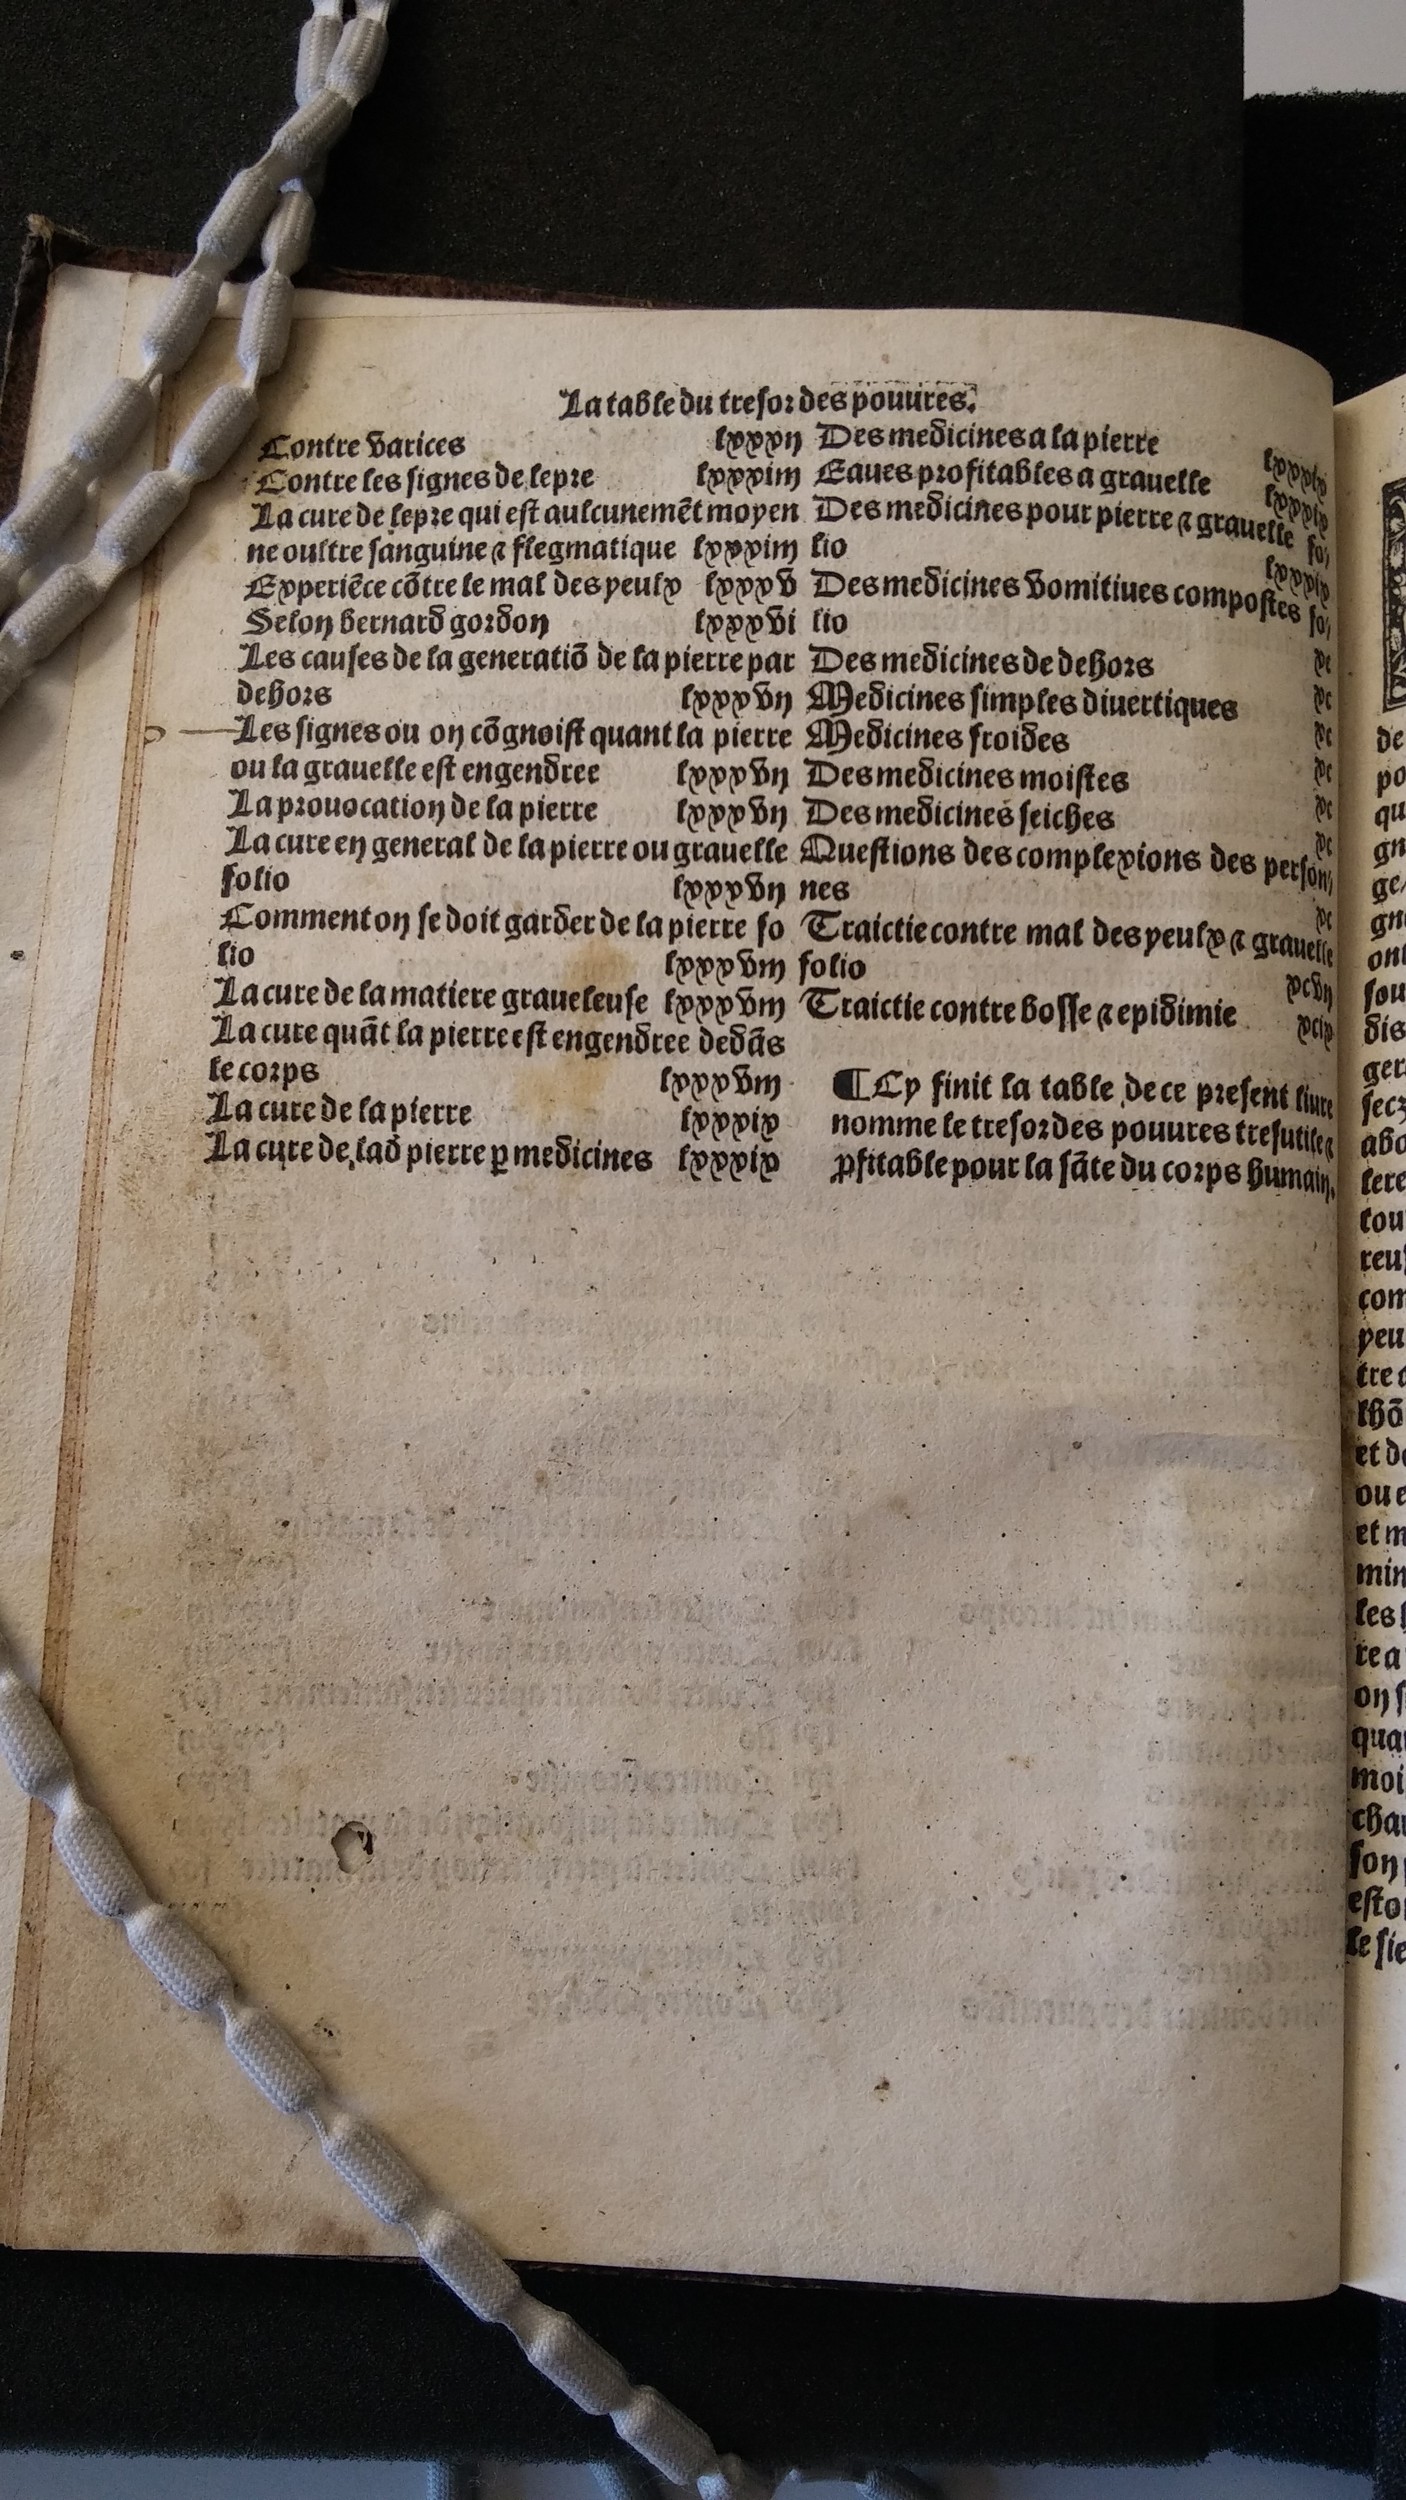 La table du tresor des pouures.
Contre varices lxxxij
Contre les signes de lepre lxxxiiij
La cure de lepre qui est aulcunemēt moyen
ne oultre sanguine ⁊ flegmatique lxxxiiij
Experiēce cōtre le mal des yeulx lxxxv
Selon bernard gordon lxxxvi
Les causes de la generatiō de la pierre par
dehors lxxxvij
Les signes ou on cōgnoist quant la pierre
ou la grauelle est engendree lxxxvij
La prouocation de la pierre lxxxvij
La cure en general de la pierre ou grauelle
folio lxxxvij
Comment on se doit garder de la pierre fo
lio lxxxviij
La cure de la matiere graueleuse lxxxviij
La cure quāt la pierre est engendree dedās
le corps lxxxviij
La cure de la pierre lxxxix
La cure de lad̄ pierre ꝑ medicines lxxxix
Des medicines a la pierre lxxxix
Eaues profitables a grauelle lxxxix
Des medicines pour pierre ⁊ grauelle fo/
lio lxxxix
Des medicines vomitiues compostes fo/
lio xc
Des medicines de dehors xc
Medicines simples diuertiques xc
Medicines froides xc
Des medicines moistes xc
Des medicines seiches xc
Questions des complexions des person/
nes xc
Traictie contre mal des yeulx ⁊ grauelle
folio xcvij
Traictie contre bosse ⁊ epidimie xcix
¶ Cy finit la table de ce present liure
nomme le tresor des pouures tresutile ⁊
ꝓfitable pour la sāte du corps humain.